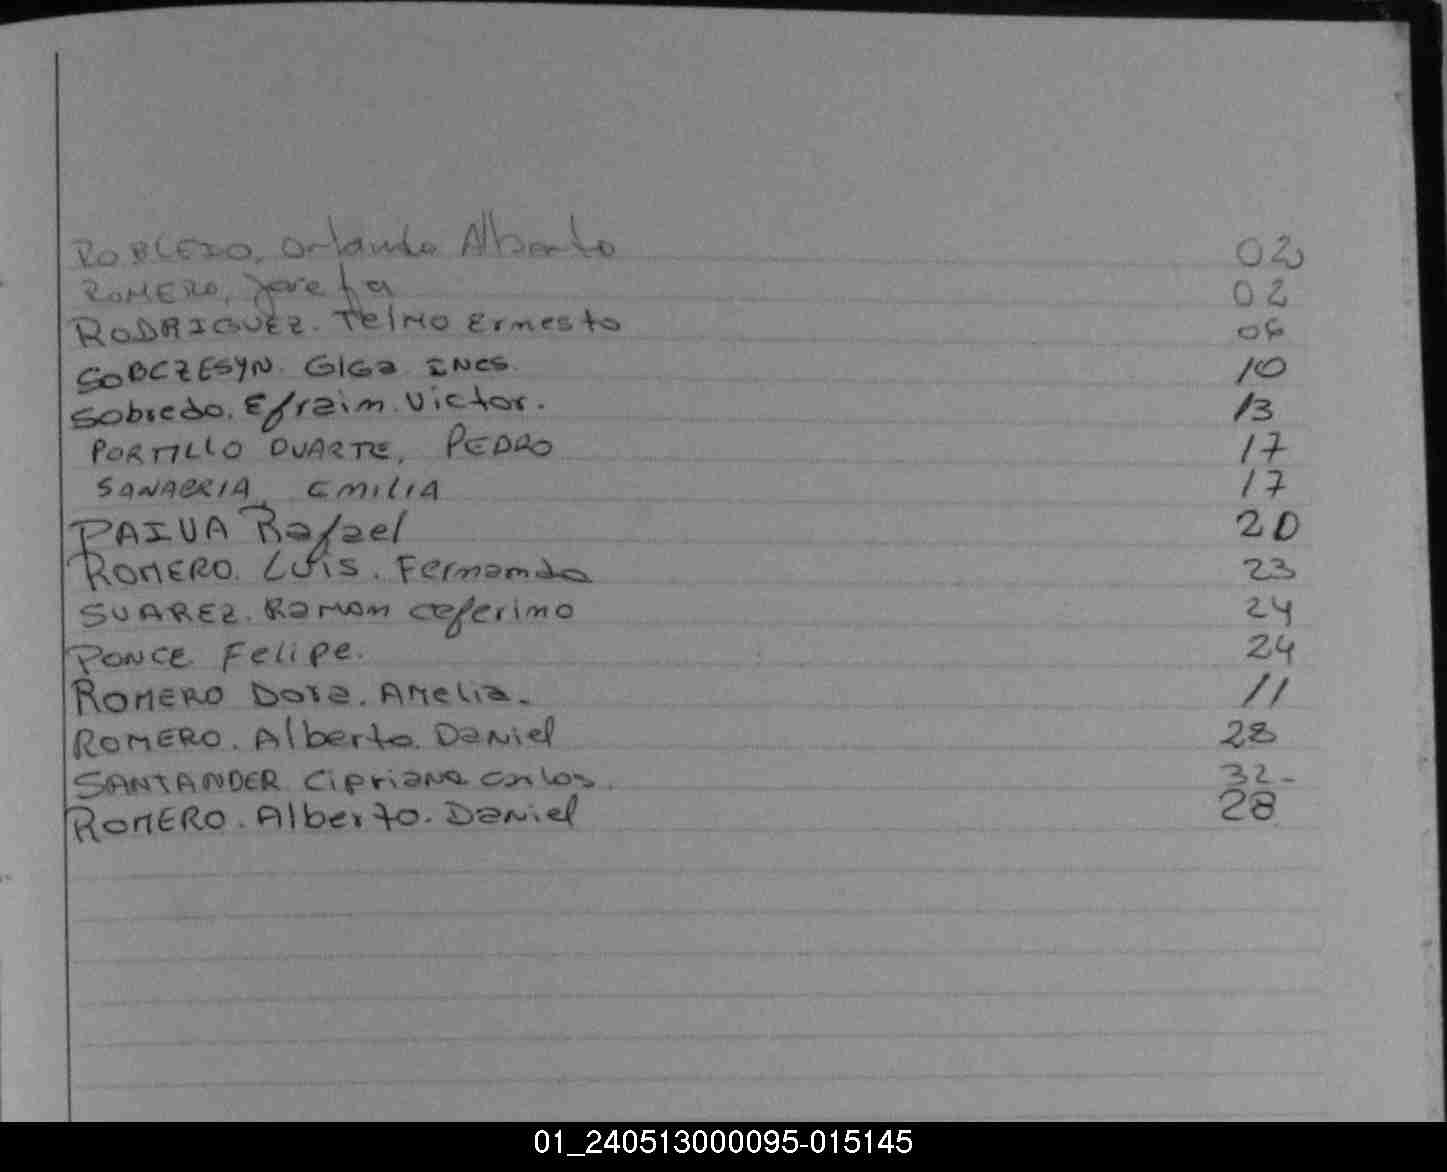 ROBLEDO, Orlando Alberto 02
ROMERO, Josefa 02
RODRIGUEZ. Telmo Ernesto 06
SOBCZESYN. GlGa INES. 10
Sobredo. Efraim. Victor. 13
PORTILLO DUARTE, PEDRO 17
SANABRIA, EMILIA 17
PAIVA Rafael 20
ROMERO. LUIS. Fernando 23
SUAREZ. Ramon ceferino 24
PONCE Felipe. 24
ROMERO Dora. Amelia. 11
ROMERO. Alberto. Daniel 28
SANTANDER Cipriano Carlos. 32-
ROMERO. Alberto. Daniel 28
01_240513000095-015145